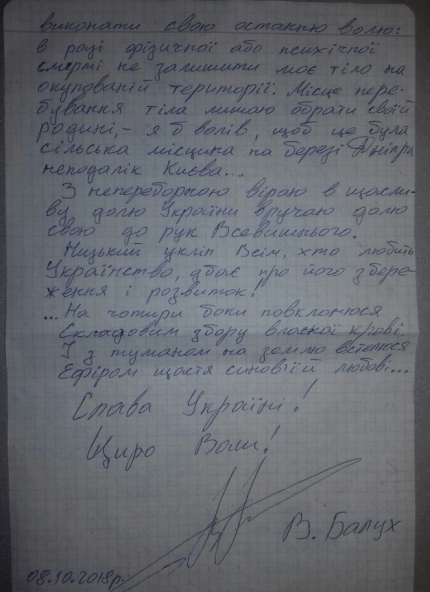 виконати свою останню волю:
в разі фізичної або психічної
смерті не залишити моє тіло на
окупованій території. Місце пере-
бування тіла лишаю обрати своїй
родині,- я б волів, щоб це була
сільська місцина на березі Дніпра
неподалік Києва...
З непереборною вірою в щасли-
ву долю України вручаю долю
свою до рук Всевишнього.
Низький уклін Всім, хто любить
Українство, дбає про його збере-
ження і розвиток!
...На чотири боки поклонюся
Складовим збору власної крові
І з туманом на землю встелюся
Ефіром щастя синовїй любові...
Слава Україні!
Щиро Воли!
В. Балух
08.10.2018р.